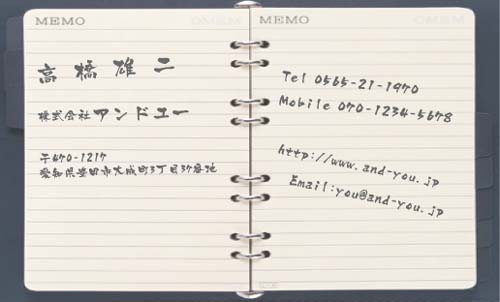 MEMO
高橋雄二
株式会社アンドユー
〒470-1217
愛知県豊田市大成町3丁目37番地
MEMO
Tel 0565-21-1970
Mobile 070-1234-5678
http://www.and-you.jp
Email:you@and-you.jp